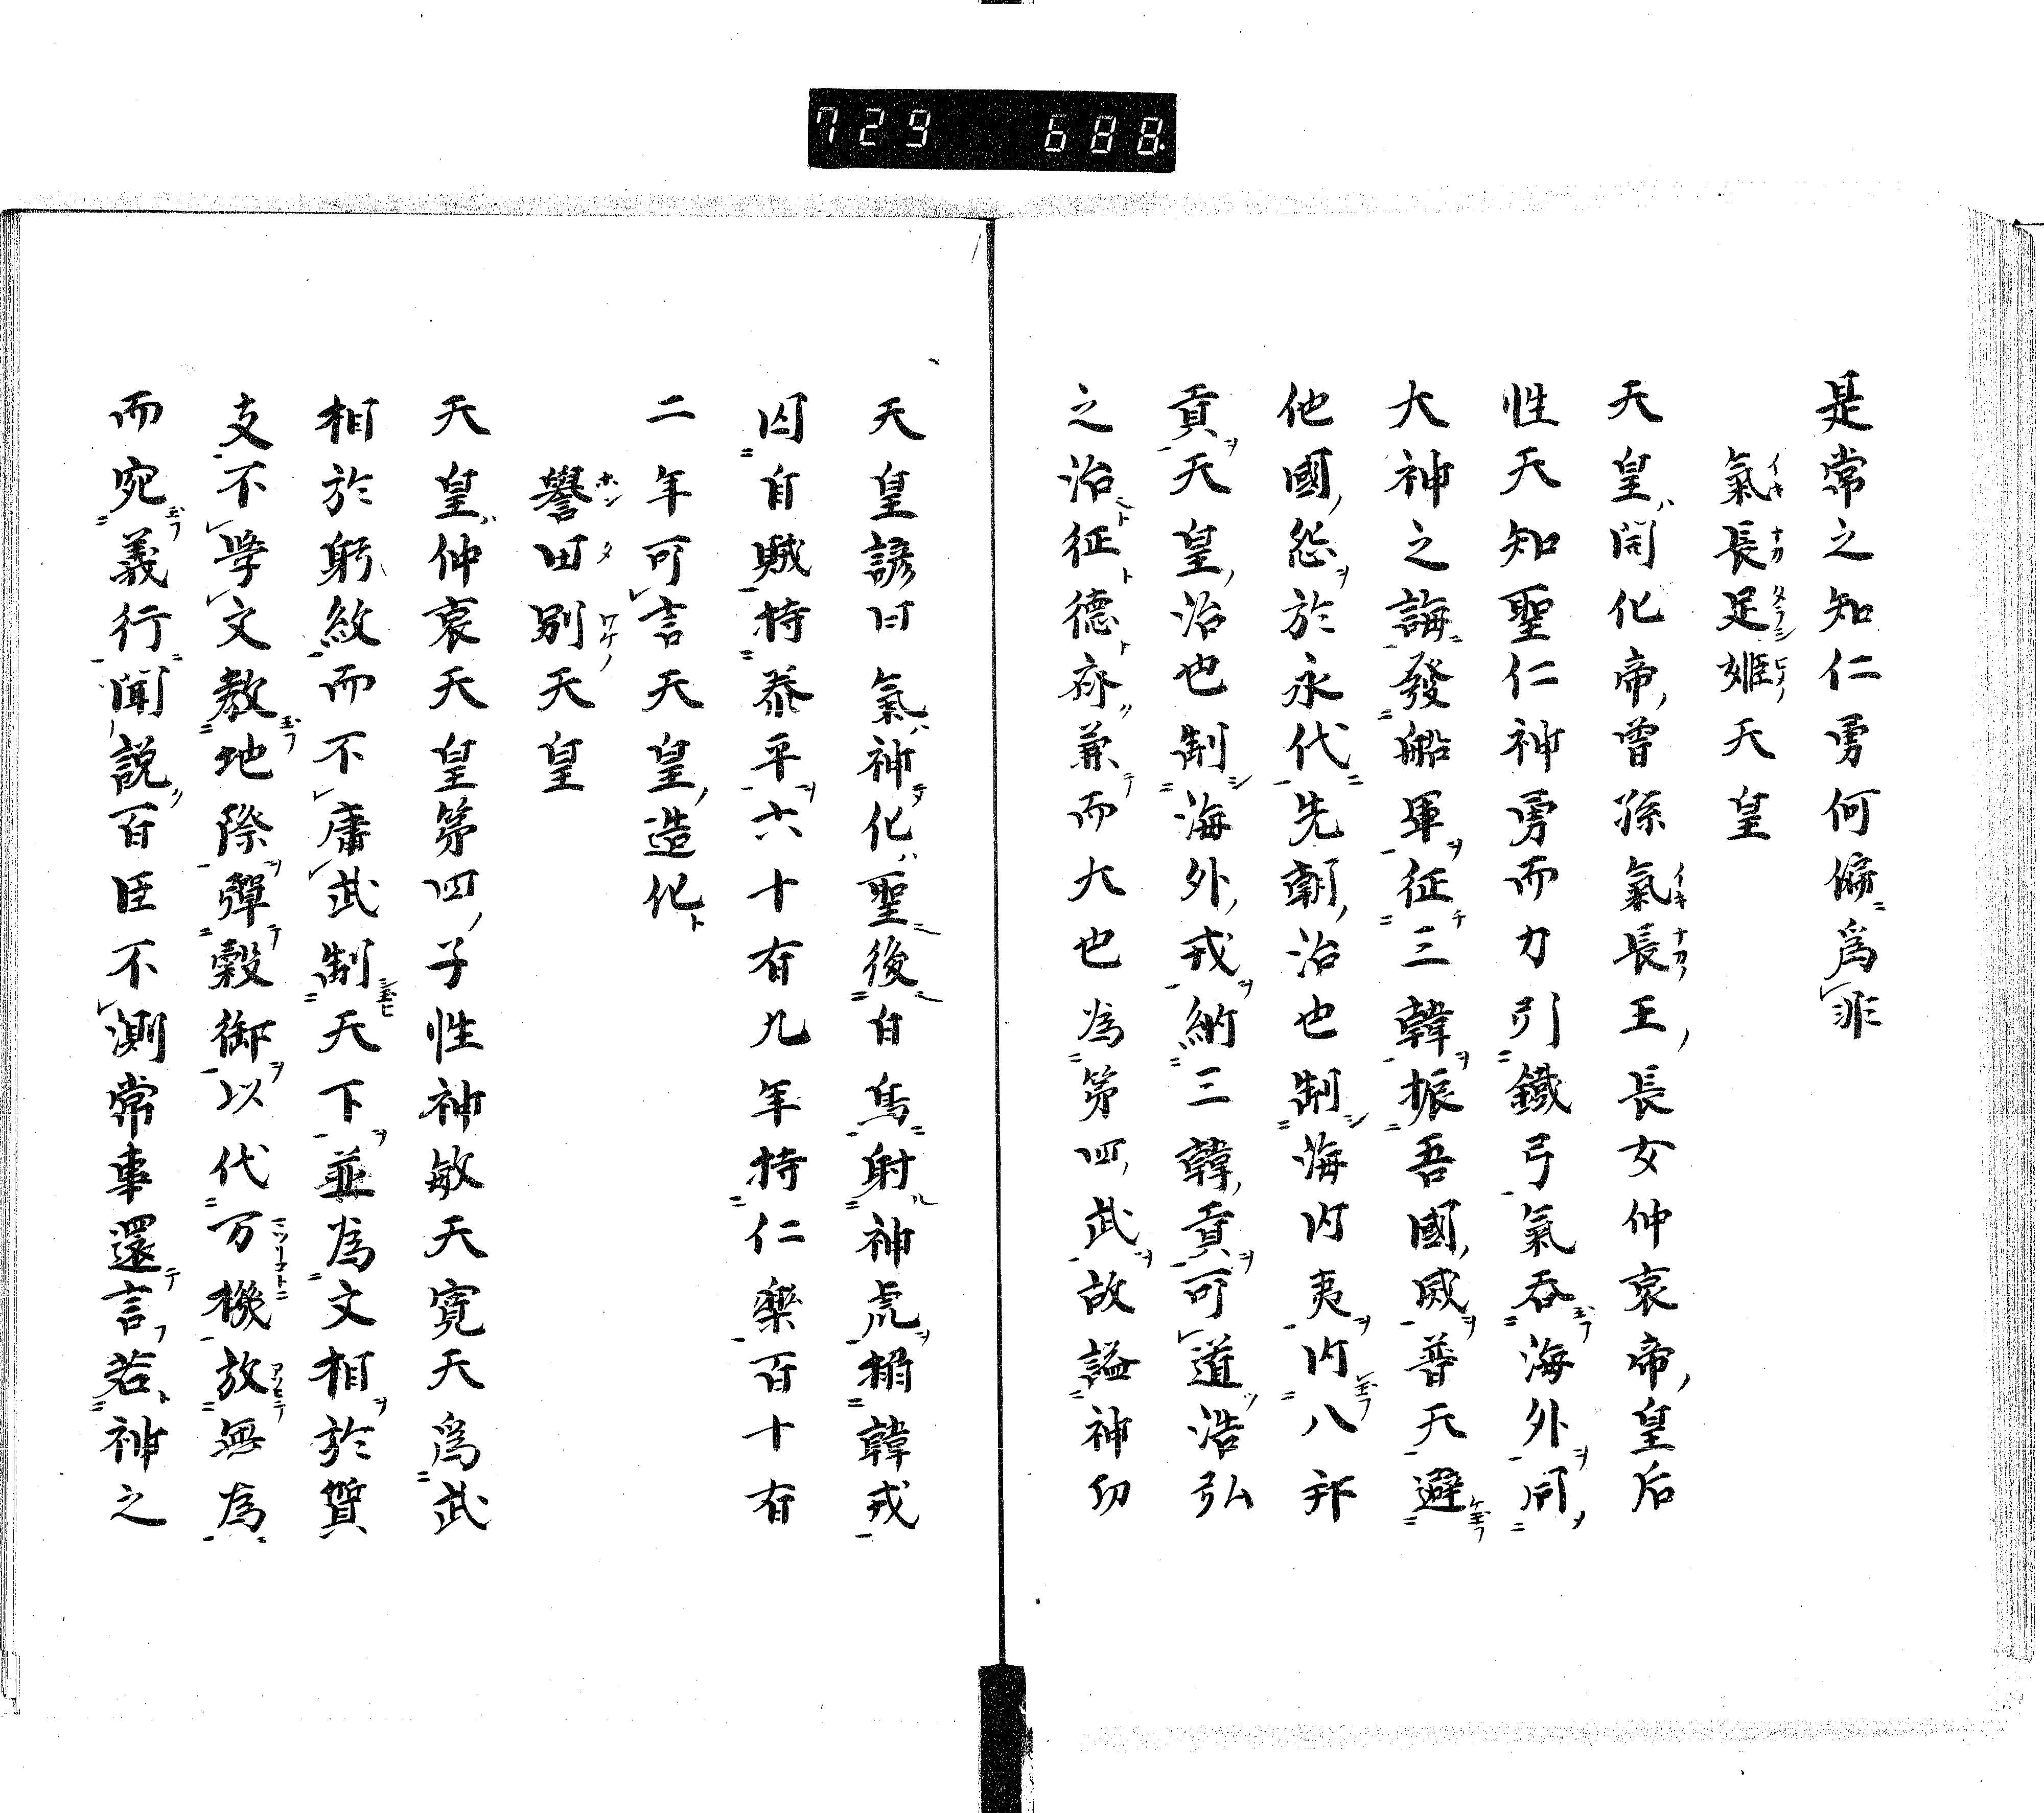 729 688.
是常之知仁勇何偏為非
氣長足姫天皇
天皇開化帝曾孫氣長王長女仲哀帝皇后
性天知聖仁神勇而力引鐵弓氣吞海外開
大神之誨發船軍征三韓振吾國威普天避
他國怨於永代先朝治也制海内夷内八邦
貢天皇治也制海外戎納三韓貢可道浩弘
之治征德兼而大也為第四武故謚神功
天皇諺曰氣神化聖後自射神虎韓戎
囚自賊持泰平六十有九年持仁樂百十有
二年可言天皇造化
譽田別天皇
天皇仲哀天皇第四子性神敏天寛天為武
相於躬紋而不庸武制天下並為文相於質
支不學文教地際彈穀御以代万機放無為
而宛義行聞説百臣不測常事還言若神之